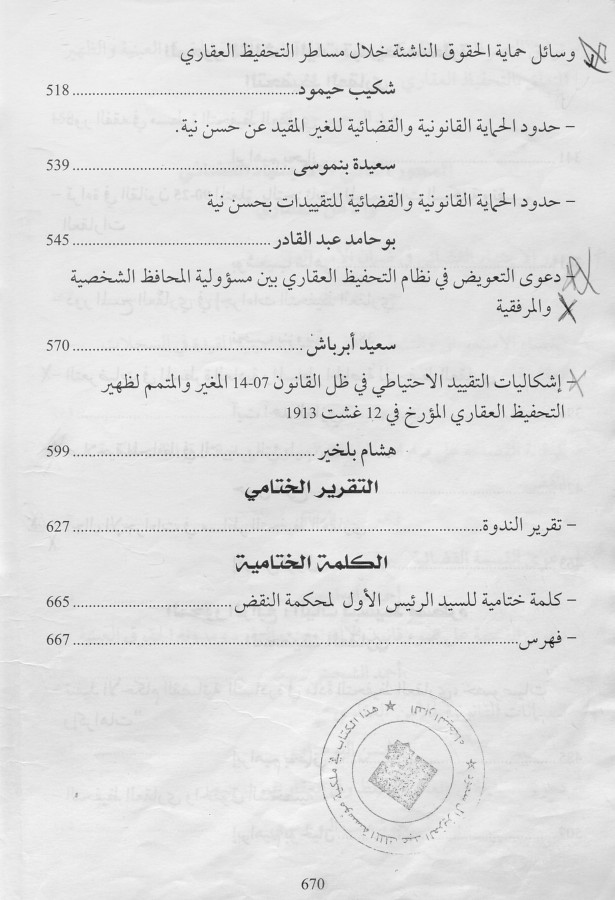 وسائل حماية الحقوق الناشئة خلال مساطر التحفيظ العقاري
شكيب حيمود ........................................ 518
– حدود الحماية القانونية والقضائية للغير المقيد عن حسن نية.
سعيدة بنموسى ........................................ 539
– حدود الحماية القانونية والقضائية للتقييدات بحسن نية
بوحامد عبد القادر ........................................ 545
– دعوى التعويض في نظام التحفيظ العقاري بين مسؤولية المحافظ الشخصية
والمرفقية
سعيد أبرباش ........................................ 570
– إشكاليات التقييد الاحتياطي في ظل القانون 07-14 المغير والمتمم لظهير
التحفيظ العقاري المؤرخ في 12 غشت 1913
هشام بلخير ........................................ 599
التقرير الختامي
– تقرير الندوة ........................................ 627
الكلمة الختامية
– كلمة ختامية للسيد الرئيس الأول لمحكمة النقض ........................................ 665
– فهرس ........................................ 667
هذا الكتاب في ملكية مؤسسة الملك عبد العزيز آل سعود
670